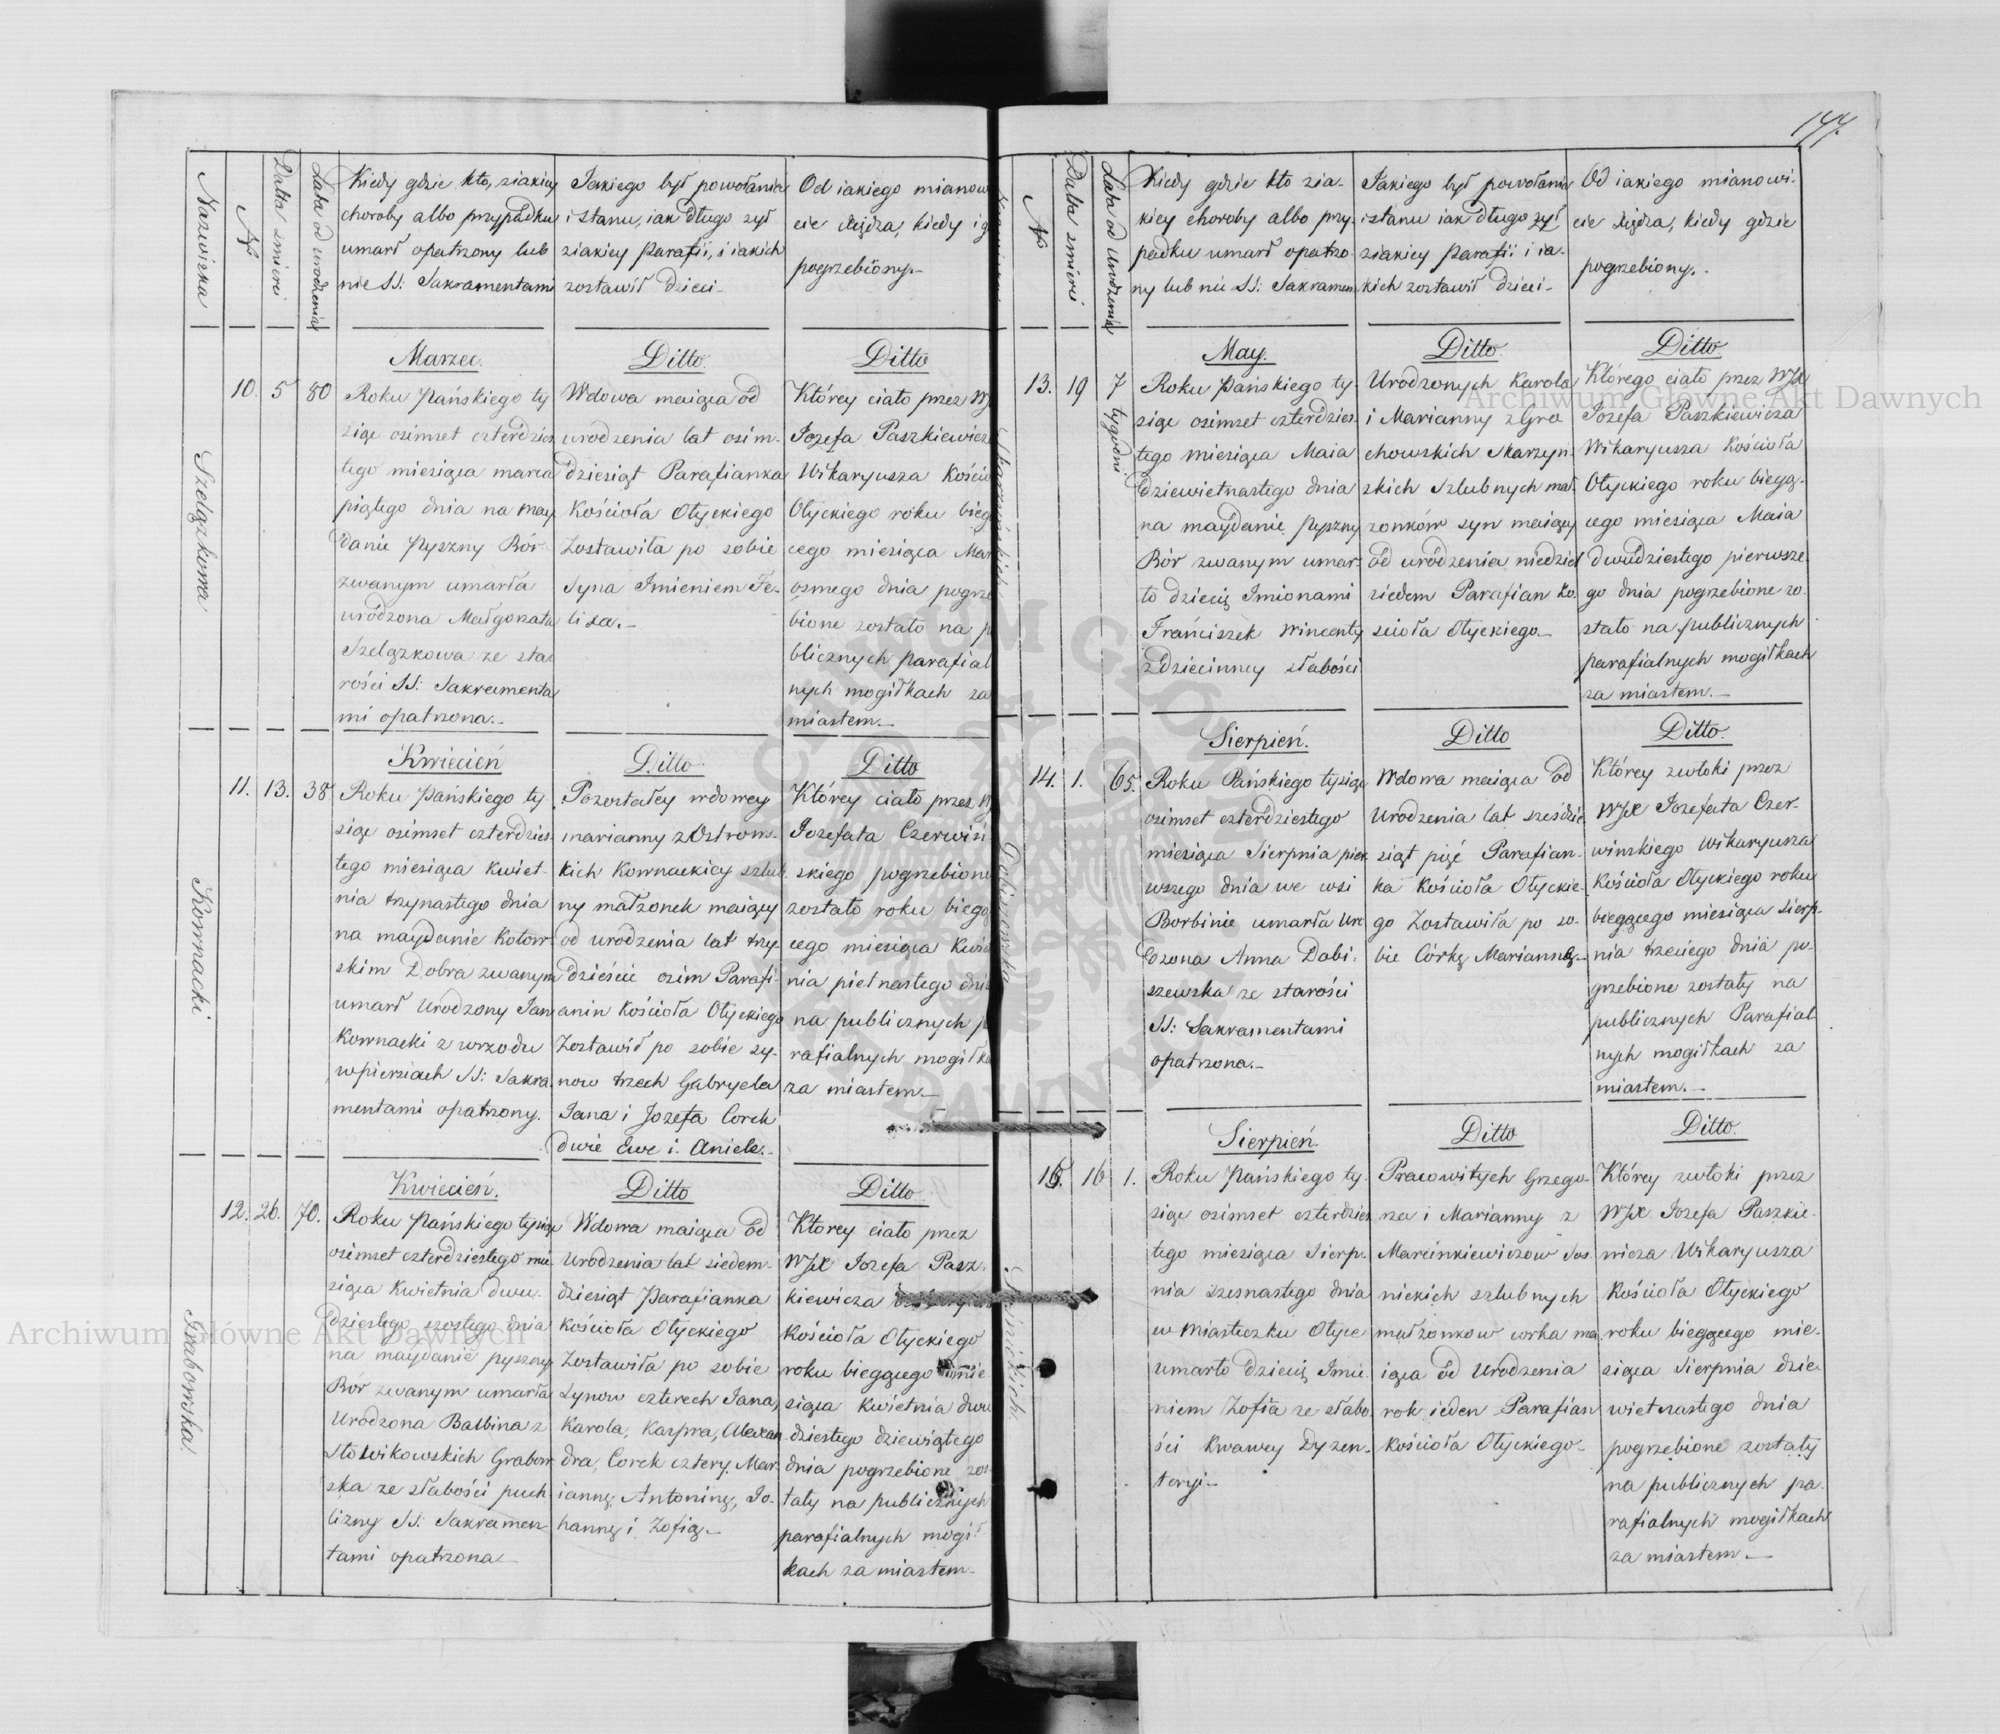 Nazwiska
№
Data smierci
Lata od urodzenia
Kiedy gdzie kto, ziakiey
choroby albo przypadku
umarł opatrzony lub
nie SS: Sakramentami
Jakiego był powołania
i stanu, iak długo żył
ziakiey Parafii, i iakich
zostawił Dzieci
Od iakiego mianow
cie Xiędza, kiedy i g
pogrzebiony.
Szelążkowa
10. 5 80
Marzec.
Roku Pańskiego ty
siąc osimset czterdzies
tego miesiąca marca
piątego dnia na may
danie Pyszny Bór
zwanym umarła
urodzona Małgorzata
Szelążkowa ze sta
rości SS: Sakramenta
mi opatrzona.
Ditto.
Wdowa maiąca od
urodzenia lat osim-
dziesiąt Parafianka
Kościoła Ołyckiego
Zostawiła po sobie
Syna Imieniem Fe-
lixa.
Ditto
Którey ciało przez WJ
Jozefa Paszkiewicz
Wikaryusza Kościo
Ołyckiego roku bieg
cego miesiąca Mar
osmego dnia pogrze
bione zostało na p
blicznych parafial
nych mogiłkach za
miastem.
Kownacki
11. 13. 38
Kwiecień
Roku Pańskiego ty-
siąc osimset czterdzies-
tego miesiąca Kwiet-
nia trzynastego dnia
na maydanie Kotow-
skim Dobra zwanym
umarł Urodzony Jan
Kownacki z wrzodu
w piersiach SS: Sakra-
mentami opatrzony.
Ditto.
Pozostałey wdowey
marianny z Ostrows-
kich Kownackiey szlub-
ny małżonek maiący
od urodzenia lat trzy-
dzieście osim Parafi-
anin Kościoła Ołyckiego
Zostawił po sobie sy-
now trzech Gabryela
Jana i Jozefa Corek
dwie Ewe i Aniele.
Ditto
Którey ciało przez W
Jozefata Czerwiń
skiego pogrzebione
zostało roku biegą
cego miesiąca Kwie
nia pietnastego dni
na publicznych p
rafialnych mogiłka
za miastem.
Grabowska
12. 26. 70.
Kwiecień.
Roku Pańskiego tysiąc
osimset czterdziestego mie
siąca Kwietnia dwu-
dziestego szostego dnia
na maydanie pyszny
Bór zwanym umarła
Urodzona Balbina z
Słowikowskich Grabow
ska ze słabości puch
lizny SS: Sakramen
tami opatrzona
Ditto
Wdowa maiąca od
Urodzenia lat siedem-
dziesiąt Parafianka
Kościoła Ołyckiego
Zostawiła po sobie
Synow czterech Jana,
Karola, Kaspra, Alexan
dra, Corek cztery, Mar-
iannę Antoninę, Jo-
hannę i Zofią.
Ditto.
Ktorey ciało przez
WJX Jozefa Pasz
kiewicza
Kościoła Ołyckiego
roku biegącego mie
siąca Kwietnia dwu
dziestego dziewiątego
dnia pogrzebione zos-
tały na publicznych
parafialnych mogił
kach za miastem.
144.
№
Data smierci
Lata od Urodzenia
Kiedy gdzie kto zia-
kiey choroby albo przy-
padku umarł opatrzo-
ny lub nie SS: Sakramen
Jakiego był powołania
i stanu iak długo żył
ziakiey Parafii i ia-
kich zostawił Dzieci
Od iakiego mianowi-
cie Xiędza, kiedy gdzie
pogrzebiony.
13. 19 7 tygodni
May.
Roku Pańskiego ty
siąc osimset czterdzies
tego miesiąca Maia
dziewietnastego dnia
na maydanie Pyszny
Bór zwanym umar-
ło dziecię Imionami
Franciszek Wincenty
z dziecinney słabości
Ditto.
Urodzonych Karola
i Marianny z Gro
chowskich Skarzyn-
skich szlubnych mał-
żonków syn maiący
od urodzenia niedziel
siedem Parafian Ko-
scioła Ołyckiego
Ditto.
Którego ciało przez WJX
Jozefa Paszkiewicza
Wikaryusza Kościoła
Ołyckiego roku biegą-
cego miesiąca Maia
dwudziestego pierwsze-
go dnia pogrzebione zo-
stało na publicznych
parafialnych mogiłkach
za miastem.
14. 1. 65.
Sierpień.
Roku Pańskiego tysiąc
osimset czterdziestego
miesiąca Sierpnia pier-
wszego dnia we wsi
Borbinie umarła Uro
dzona Anna Dobi-
szewska ze starości
SS: Sakramentami
opatrzona.
Ditto
Wdowa maiąca od
Urodzenia lat sześćdzie
siąt pięć Parafian-
ka Kościoła Ołyckie-
go Zostawiła po so-
bie Córkę Mariannę.
Ditto.
Którey zwłoki przez
WJX Jozefata Czer-
winskiego Wikaryusza
Kościoła Ołyckiego roku
biegącego miesiąca Sierp-
nia trzeciego dnia po-
grzebione zostały na
publicznych Parafial
nych mogiłkach za
miastem.
15. 16 1.
Sierpień.
Roku Pańskiego ty-
siąc osimset czterdzies
tego miesiąca Sierp-
nia szesnastego dnia
w Miasteczku Ołyce
umarło Dziecię Imie
niem Zofia ze słabo
ści Krwawey Dyzen-
teryi
Ditto
Pracowitych Grzego-
rza i Marianny z
Marcinkiewiczow Sos-
nickich szlubnych
małżonkow corka ma
iąca od Urodzenia
rok ieden Parafian
Kościoła Ołyckiego
Ditto.
Którey zwłoki przez
WJX Jozefa Paszkie-
wicza Wikaryusza
Kościoła Ołyckiego
roku biegącego mie-
siąca Sierpnia dzie
wietnastego dnia
pogrzebione zostały
na publicznych pa-
rafialnych mogiłkach
za miastem.
Archiwum Główne Akt Dawnych
Archiwum Główne Akt Dawnych